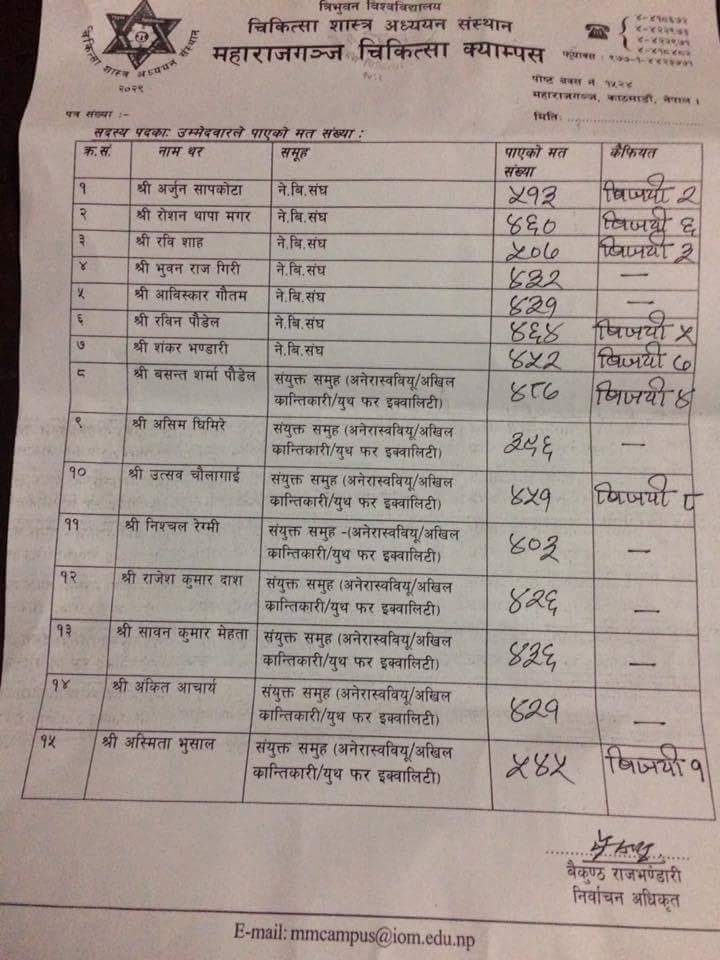 त्रिभुवन विश्वविद्यालय
चिकित्सा शास्त्र अध्ययन संस्थान
महाराजगञ्ज चिकित्सा क्याम्पस
चिकित्सा शास्त्र अध्ययन संस्थान
२०२९
पोष्ट बक्स नं. १५२४
महाराजगञ्ज, काठमाडौं, नेपाल ।
पत्र संख्या :-
मिति:
सदस्य पदकाः उम्मेदवारले पाएको मत संख्या :
क्र.सं. नाम थर समूह पाएको मत संख्या कैफियत
१ श्री अर्जुन सापकोटा ने.बि.संघ ५१३ बिजयी २
२ श्री रोशन थापा मगर ने.बि.संघ ४६० बिजयी ६
३ श्री रवि शाह ने.बि.संघ ५०७ बिजयी ३
४ श्री भुवन राज गिरी ने.बि.संघ ४३२ —
५ श्री आविस्कार गौतम ने.बि.संघ ४२१ —
६ श्री रविन पौडेल ने.बि.संघ ४६४ बिजयी ५
७ श्री शंकर भण्डारी ने.बि.संघ ४५२ बिजयी ७
८ श्री बसन्त शर्मा पौडेल संयुक्त समुह (अनेरास्ववियू/अखिल
कान्तिकारी/युथ फर इक्वालिटी) ४८७ बिजयी ४
९ श्री असिम घिमिरे संयुक्त समुह (अनेरास्ववियू/अखिल
कान्तिकारी/युथ फर इक्वालिटी) ३९६ —
१० श्री उत्सव चौलागाई संयुक्त समुह (अनेरास्ववियू/अखिल
कान्तिकारी/युथ फर इक्वालिटी) ४५१ बिजयी ८
११ श्री निश्चल रेग्मी संयुक्त समुह -(अनेरास्ववियू/अखिल
कान्तिकारी/युथ फर इक्वालिटी) ४०३ —
१२ श्री राजेश कुमार दाश संयुक्त समुह (अनेरास्ववियू/अखिल
कान्तिकारी/युथ फर इक्वालिटी) ४२६ —
१३ श्री सावन कुमार मेहता संयुक्त समुह (अनेरास्ववियू/अखिल
कान्तिकारी/युथ फर इक्वालिटी) ४३६ —
१४ श्री अंकित आचार्य संयुक्त समुह (अनेरास्ववियू/अखिल
कान्तिकारी/युथ फर इक्वालिटी) ४२१ —
१५ श्री अस्मिता भुसाल संयुक्त समुह (अनेरास्ववियू/अखिल
कान्तिकारी/युथ फर इक्वालिटी) ५४५ बिजयी १
बैकुण्ठ राजभण्डारी
निर्वाचन अधिकृत
E-mail: mmcampus@iom.edu.np